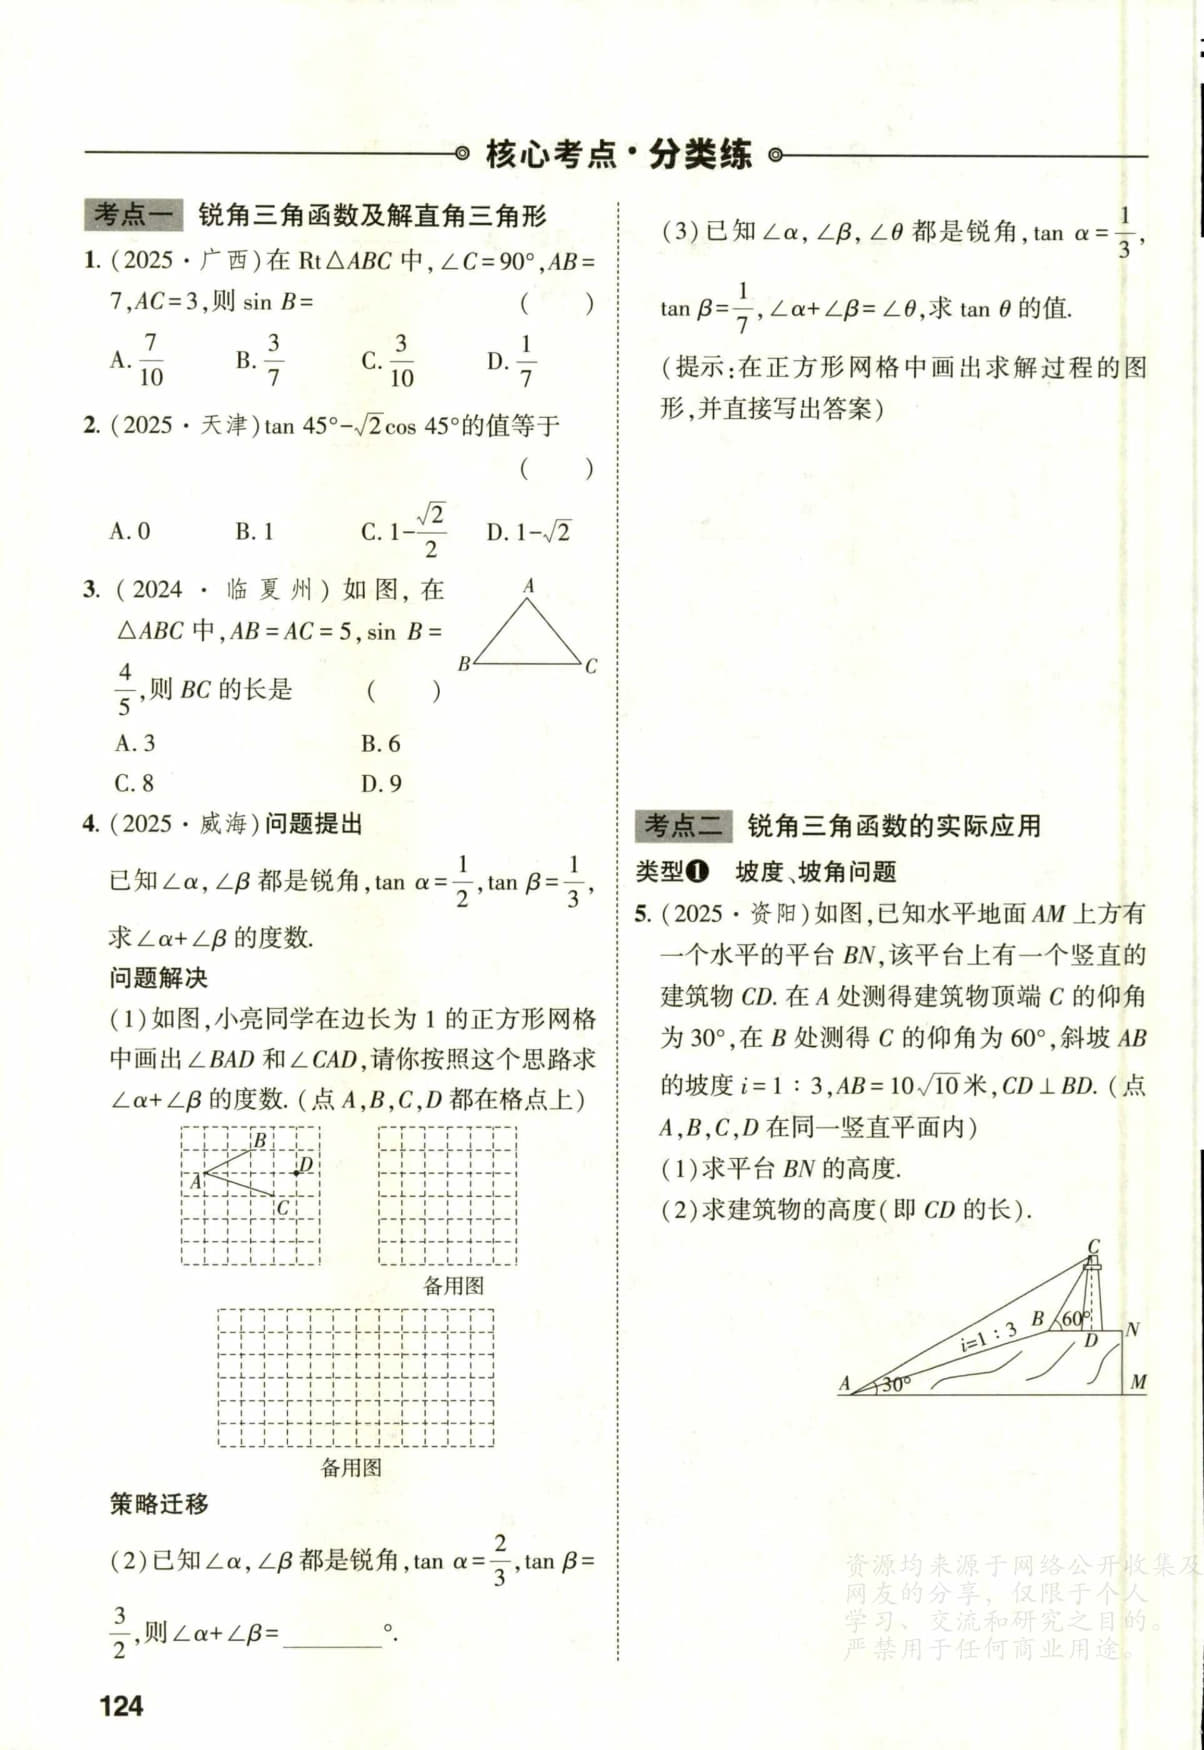 核心考点·分类练
考点一 锐角三角函数及解直角三角形
1. (2025·广西)在 Rt△ABC 中,∠C=90°,AB=
7,AC=3,则 sin B= ( )
A. 7/10 B. 3/7 C. 3/10 D. 1/7
2. (2025·天津)tan 45°-√2cos 45°的值等于
( )
A. 0 B. 1 C. 1-√2/2 D. 1-√2
3. (2024·临夏州)如图,在
△ABC 中,AB=AC=5,sin B=
4/5,则 BC 的长是 ( )
A. 3 B. 6
C. 8 D. 9
A
B
C
4. (2025·威海)问题提出
已知∠α,∠β 都是锐角,tan α=1/2,tan β=1/3,
求∠α+∠β 的度数.
问题解决
(1)如图,小亮同学在边长为 1 的正方形网格
中画出∠BAD 和∠CAD,请你按照这个思路求
∠α+∠β 的度数. (点 A,B,C,D 都在格点上)
B
D
A
C
备用图
备用图
策略迁移
(2)已知∠α,∠β 都是锐角,tan α=2/3,tan β=
3/2,则∠α+∠β=________°.
124
(3)已知∠α,∠β,∠θ 都是锐角,tan α=1/3,
tan β=1/7,∠α+∠β=∠θ,求 tan θ 的值.
(提示:在正方形网格中画出求解过程的图
形,并直接写出答案)
考点二 锐角三角函数的实际应用
类型❶ 坡度、坡角问题
5. (2025·资阳)如图,已知水平地面 AM 上方有
一个水平的平台 BN,该平台上有一个竖直的
建筑物 CD. 在 A 处测得建筑物顶端 C 的仰角
为 30°,在 B 处测得 C 的仰角为 60°,斜坡 AB
的坡度 i=1∶3,AB=10√10米,CD⊥BD. (点
A,B,C,D 在同一竖直平面内)
(1)求平台 BN 的高度.
(2)求建筑物的高度(即 CD 的长).
C
B 60° N
D
i=1∶3
A 30° M
资源均来源于网络公开收集及
网友的分享，仅限于个人
学习、交流和研究之目的。
严禁用于任何商业用途。